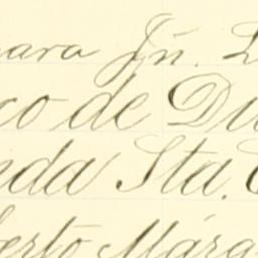 ara Jn. L
co de Du
nda Sta. C
berto Marq